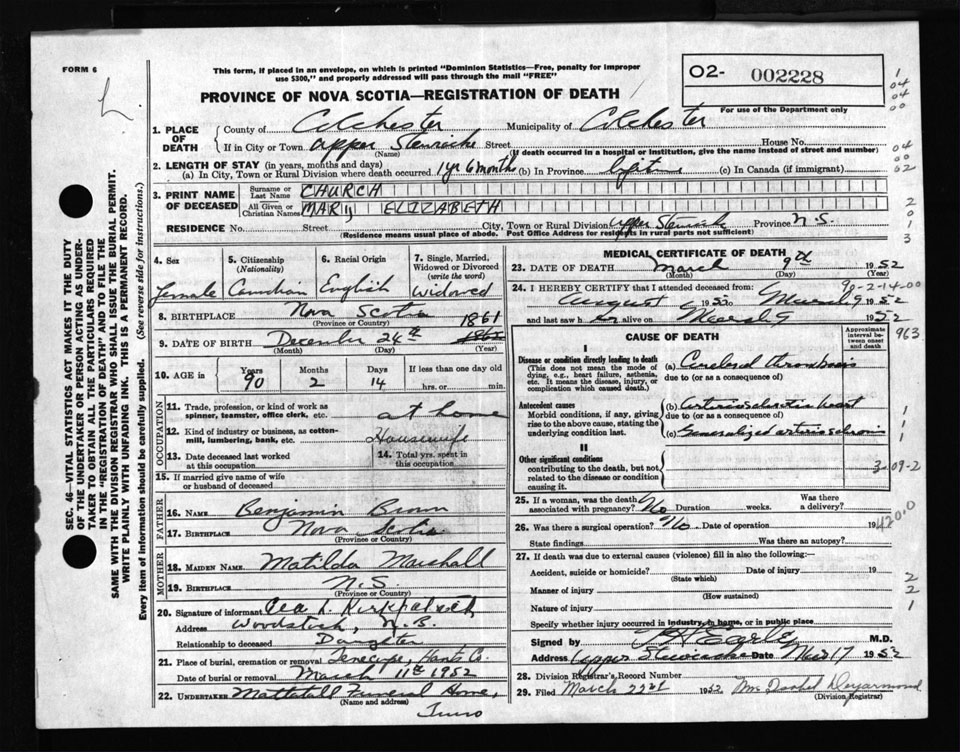 FORM 6
L
This form, if placed in an envelope, on which is printed "Dominion Statistics—Free, penalty for improper
use $300," and properly addressed will pass through the mail "FREE"
PROVINCE OF NOVA SCOTIA—REGISTRATION OF DEATH
02- 002228
For use of the Department only
1. PLACE OF DEATH
County of Colchester Municipality of Colchester
If in City or Town Upper Stewiacke Street House No.
(Name) (If death occurred in a hospital or institution, give the name instead of street and number)
2. LENGTH OF STAY (in years, months and days)
(a) In City, Town or Rural Division where death occurred 1 yr 6 months (b) In Province life (c) In Canada (if immigrant)
3. PRINT NAME OF DECEASED
Surname or Last Name CHURCH
All Given or Christian Names MARY ELIZABETH
RESIDENCE No. Street City, Town or Rural Division Upper Stewiacke Province N.S.
(Residence means usual place of abode. Post Office Address for residents in rural parts not sufficient)
4. Sex
female
5. Citizenship (Nationality)
Canadian
6. Racial Origin
English
7. Single, Married, Widowed or Divorced (write the word)
widowed
8. BIRTHPLACE Nova Scotia
(Province or Country)
1861
9. DATE OF BIRTH December 24th
(Month) (Day) (Year)
10. AGE in Years Months Days If less than one day old
90 2 14 hrs. or min.
OCCUPATION
11. Trade, profession, or kind of work as spinner, teamster, office clerk, etc. at home
12. Kind of industry or business, as cotton-mill, lumbering, bank, etc. Housewife
13. Date deceased last worked at this occupation
14. Total yrs. spent in this occupation
15. If married give name of wife or husband of deceased
FATHER
16. NAME Benjamin Brown
17. BIRTHPLACE Nova Scotia
(Province or Country)
MOTHER
18. MAIDEN NAME Matilda Marshall
19. BIRTHPLACE N.S.
(Province or Country)
20. Signature of informant Kirkpatrick
Address Woodstock, N.B.
Relationship to deceased Daughter
21. Place of burial, cremation or removal Tenecape, Hants Co.
Date of burial or removal March 11th 1952
22. UNDERTAKER Mattatall Funeral Home,
(Name and address)
Truro
MEDICAL CERTIFICATE OF DEATH
23. DATE OF DEATH March 9th 1952
(Month) (Day) (Year)
24. I HEREBY CERTIFY that I attended deceased from
August March 9 1952
and last saw her alive on March 9 1952
90-2-14-00
CAUSE OF DEATH
Approximate interval between onset and death
963
I
Disease or condition directly leading to death
(This does not mean the mode of dying, e.g., heart failure, asthenia, etc. It means the disease, injury, or complication which caused death.)
(a) Cerebral thrombosis
due to (or as a consequence of)
Antecedent causes
Morbid conditions, if any, giving rise to the above cause, stating the underlying condition last.
(b) Arteriosclerotic heart
due to (or as a consequence of)
(c) Generalized arteriosclerosis
II
Other significant conditions
contributing to the death, but not related to the disease or condition causing it.
3-09-2
25. If a woman, was the death associated with pregnancy? No Duration weeks. Was there a delivery?
26. Was there a surgical operation? No Date of operation 19
420.0
State findings Was there an autopsy?
27. If death was due to external causes (violence) fill in also the following:—
Accident, suicide or homicide? Date of injury 19
(State which)
Manner of injury
(How sustained)
Nature of injury
Specify whether injury occurred in industry, in home, or in public place
Signed by Earle M.D.
Address Upper Stewiacke Date Mar 17 1952
28. Division Registrar's Record Number
29. Filed March 22nd 1952 Mrs Isabel Dejarmond
(Division Registrar)
SEC. 46—VITAL STATISTICS ACT MAKES IT THE DUTY
OF THE UNDERTAKER OR PERSON ACTING AS UNDER-
TAKER TO OBTAIN ALL THE PARTICULARS REQUIRED
IN THE "REGISTRATION OF DEATH" AND TO FILE THE
SAME WITH THE DIVISION REGISTRAR WHO SHALL ISSUE THE BURIAL PERMIT.
WRITE PLAINLY WITH UNFADING INK. THIS IS A PERMANENT RECORD.
Every item of information should be carefully supplied. (See reverse side for instructions.)
1
04
04
00
04
00
02
2
0
1
3
1
1
1
2
2
1